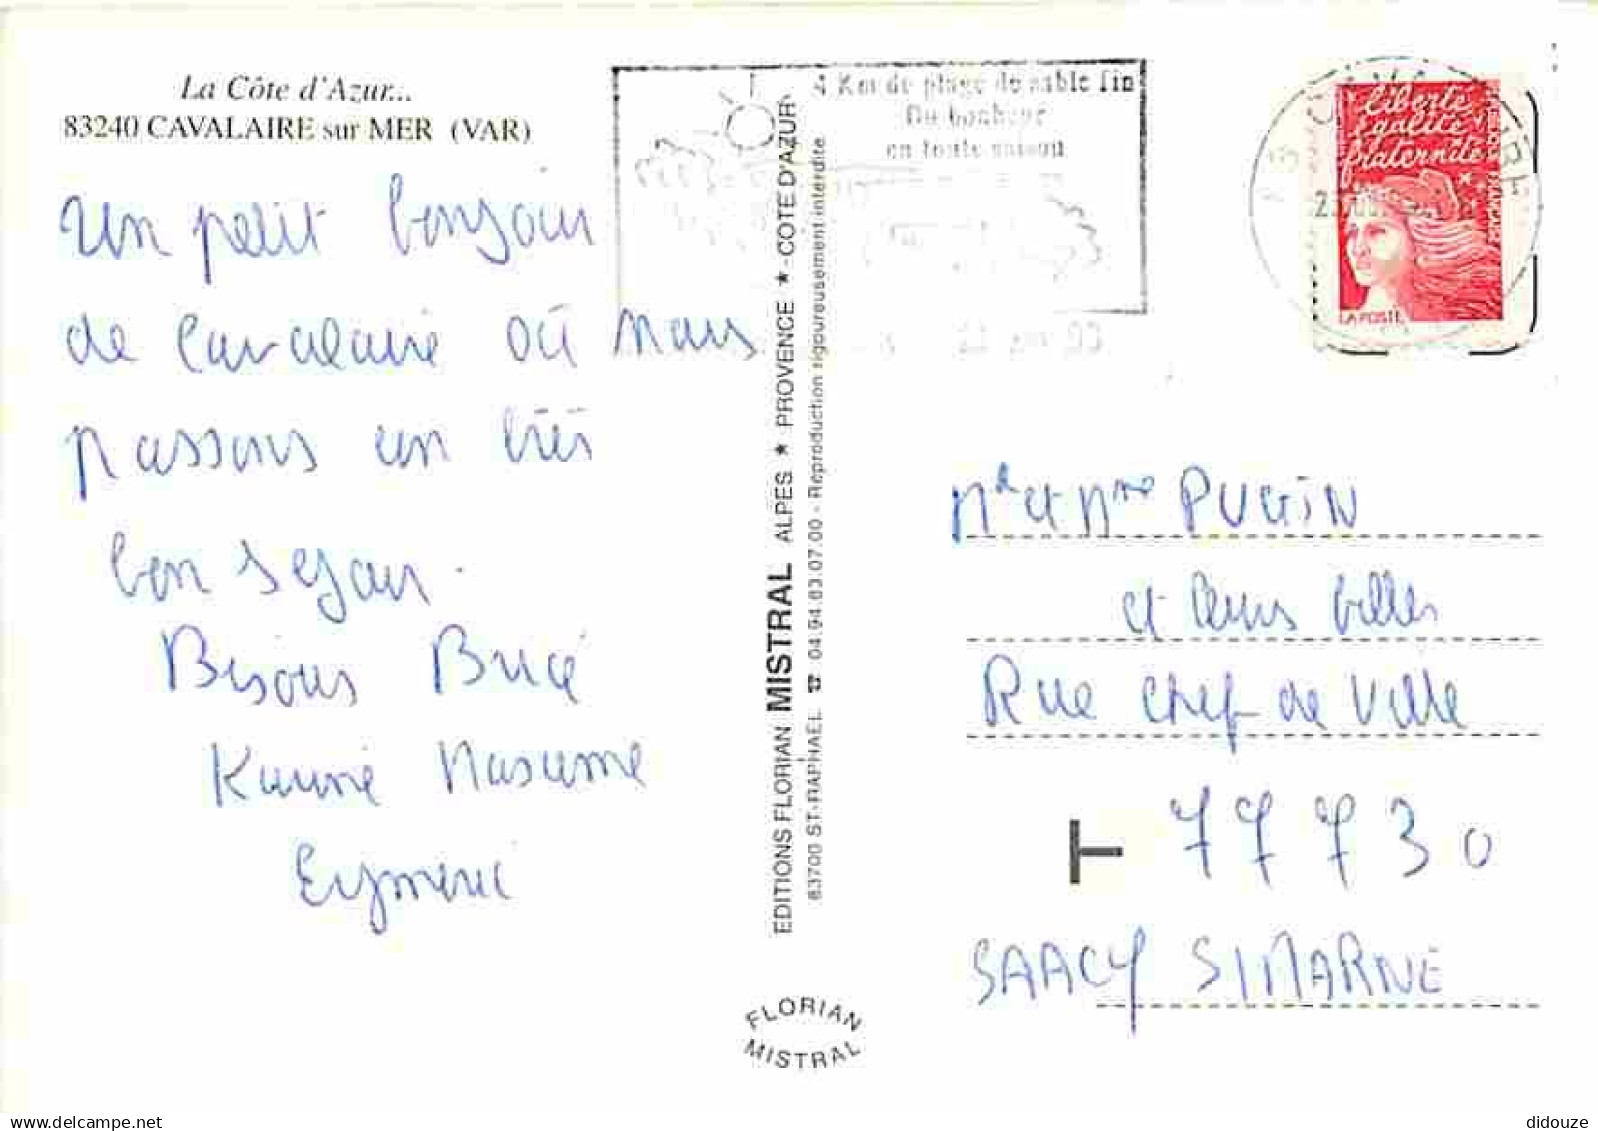 La Côte d'Azur...
83240 CAVALAIRE sur MER (VAR)
Un petit bonjour
de Cavalaire où nous
passons un très
bon séjour.
Bisous Brice
Karine Maxime
Eymeric
4 Km de plage de sable fin
Du bonheur
en toute saison
EDITIONS FLORIAN MISTRAL ALPES ★ PROVENCE ★ COTE D'AZUR
83700 ST-RAPHAEL ☎ 04.94.83.07.00 - Reproduction rigoureusement interdite
FLORIAN
MISTRAL
liberté
égalité
fraternité
LA POSTE
Mr et Mme PUGIN
et leurs filles
Rue Chef de Ville
77730
SAACY S/MARNE
didouze